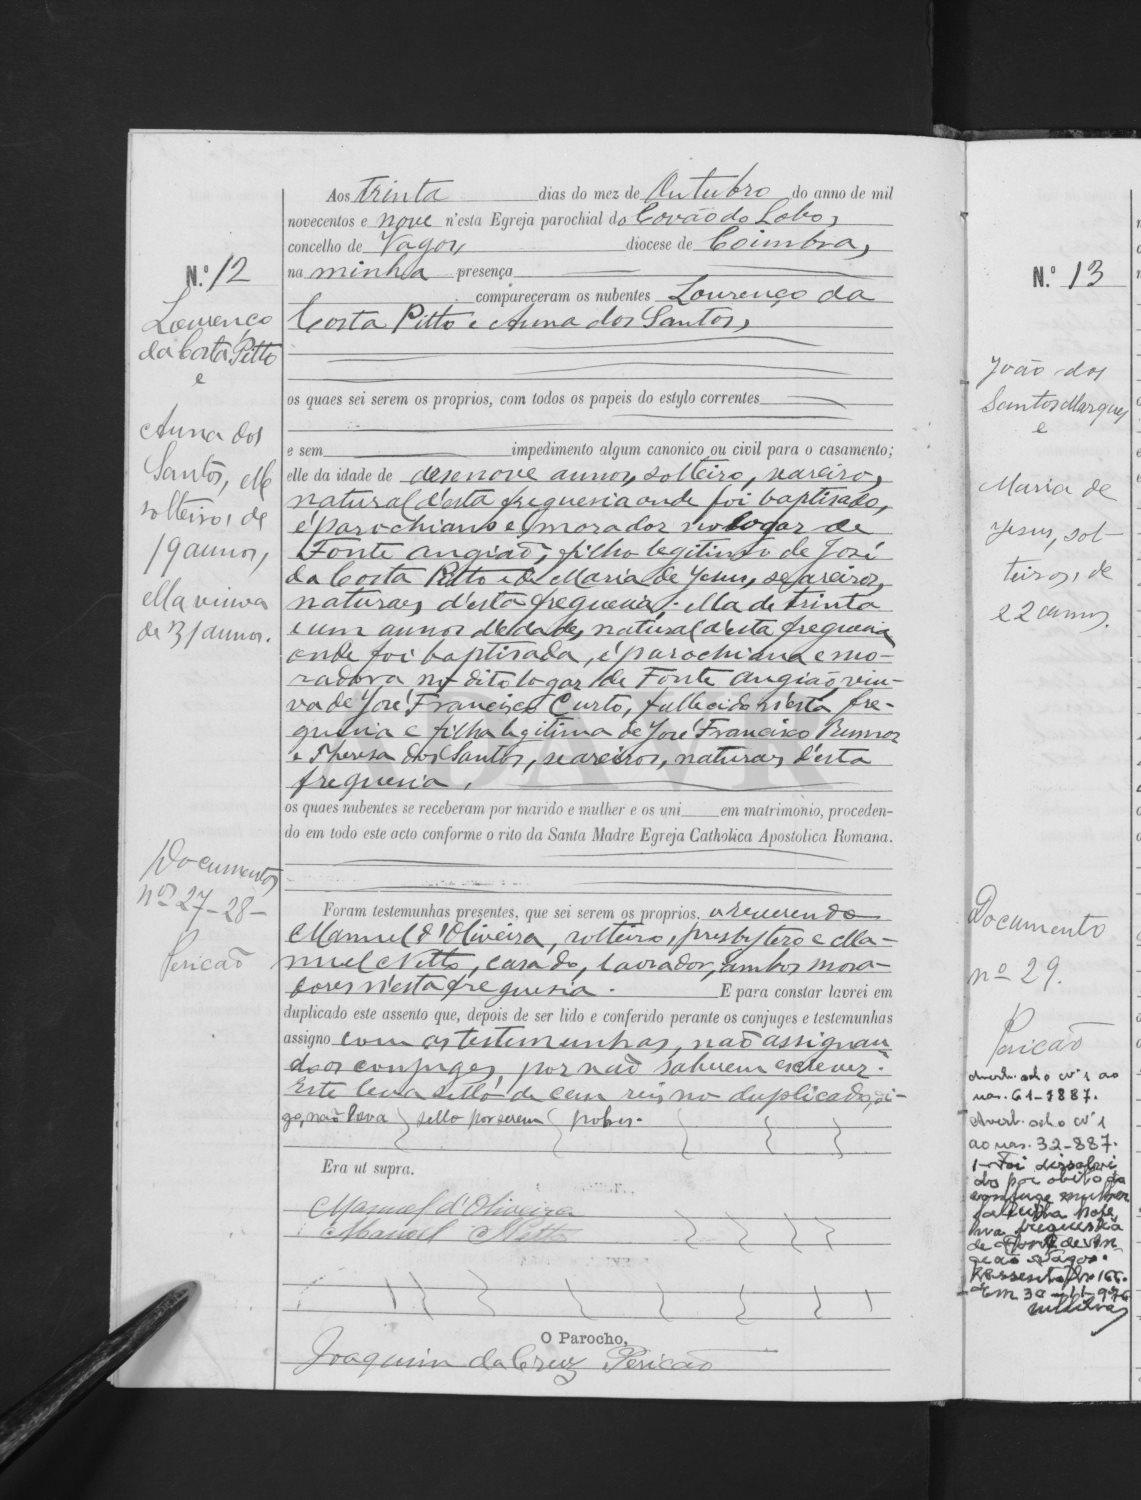 Aos Trinta dias do mez de Outubro do anno de mil
novecentos e nove n'esta Egreja parochial do Covão do Lobo,
concelho de Vagos, diocese de Coimbra,
na minha presença
compareceram os nubentes Lourenço da
Costa Pitto e Anna dos Santos,
os quaes sei serem os proprios, com todos os papeis do estylo correntes
e sem impedimento algum canonico ou civil para o casamento;
elle da idade de desenove annos, solteiro, seareiro,
natural d'esta freguesia onde foi baptisado,
é parochiano e morador no logar de
Fonte angião, filho legitimo de José
da Costa Pitto e de Maria de Jesus, seareiros,
naturaes d'esta freguesia; ella de trinta
e um annos d'edade, natural d'esta freguesia
onde foi baptisada, é parochiana e mo-
radora no dito logar de Fonte angião, viu-
va de José Francisco Curto, fallecido n'esta fre-
guesia e filha legitima de José Francisco
e Theresa dos Santos, seareiros, naturaes d'esta
freguesia.
os quaes nubentes se receberam por marido e mulher e os uni em matrimonio, proceden-
do em todo este acto conforme o rito da Santa Madre Egreja Catholica Apostolica Romana.
Foram testemunhas presentes, que sei serem os proprios, o reverendo
Manuel d'Oliveira, solteiro, presbytero e Ma-
nuel Netto, casado, lavrador, ambos mora-
dores n'esta freguesia. E para constar lavrei em
duplicado este assento que, depois de ser lido e conferido perante os conjuges e testemunhas
assigno com as testemunhas, não assignan
do os conjuges, por não saberem escrever.
Este leva sello de cem reis no duplicado, di-
go, não leva sello por serem pobres.
Era ut supra.
Manuel d'Oliveira
Manoel Netto
O Parocho,
Joaquim da Cruz Pericão
N.º 12
Lourenço
da Costa Pitto
e
Anna dos
Santos, elle
solteiro, de
19 annos,
ella viuva
de 31 annos.
Documentos
nos 27-28-
Pericão
ADAVR
N.º 13
João dos
Santos Marques
e
Maria de
Jesus, sol-
teiros, de
22 annos.
Documento
nº 29.
Pericão
Averb. sob o nº 1 ao
nas. 61-1887.
Averb. sob o nº 1
ao nas. 32-887.
1-Foi dissolvi
do por obito do
conjuge mulher
freguesia
de Fonte de An
geão Vagos.
Assento nº 166.
Em 30-11-976